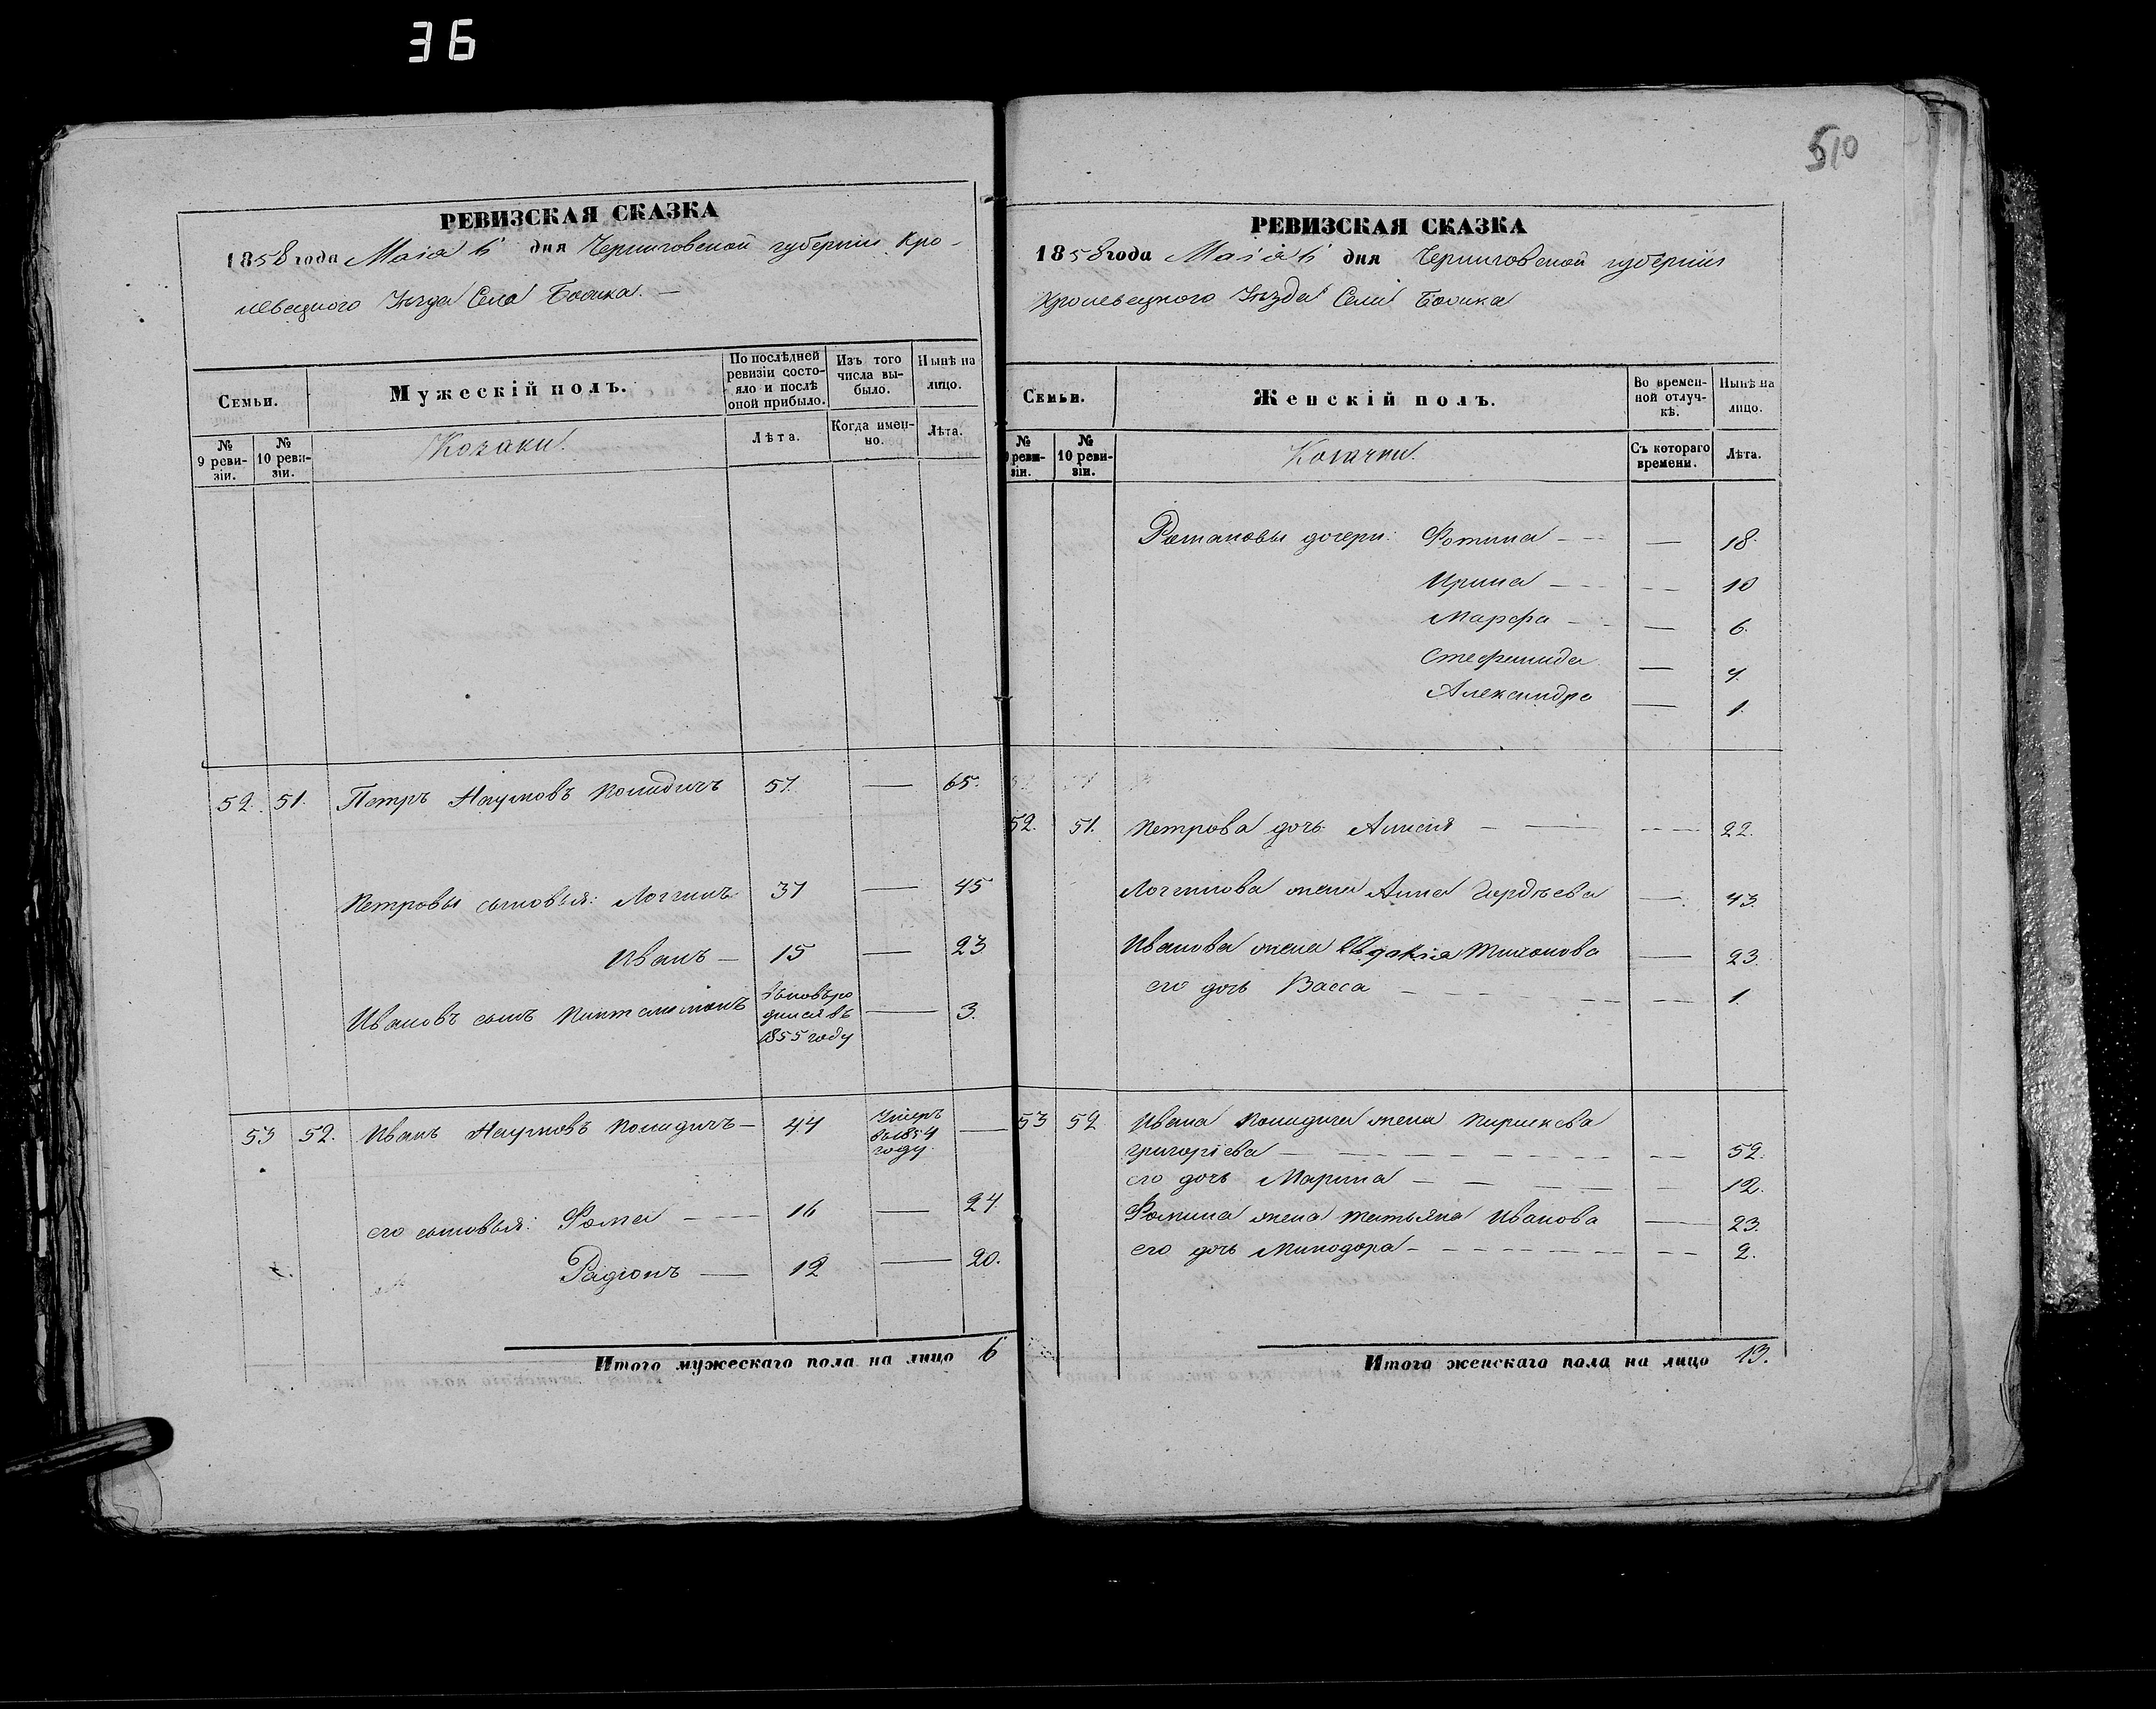 36
510
РЕВИЗСКАЯ СКАЗКА
1858 года Маія 6 дня Черниговской губерніи Кро-
левецкого Уѣзда Села
Семьи.
Мужескій полъ.
По послѣдней ревизіи состояло и послѣ оной прибыло.
Изъ того числа выбыло.
Нынѣ на лицо.
№ 9 ревизіи.
№ 10 ревизіи.
Козаки.
Лѣта.
Когда именно.
Лѣта.
52. 51. Петръ Наумовъ 57. — 65.
Петровы сыновья: Логгинъ 37 — 45
Иванъ — 15 — 23
Ивановъ сынъ Пантелимонъ вновьро
дился въ — 3.
1855 году
53 52. Иванъ Наумовъ — 44 Умеръ —
въ 1854
году.
его сыновья: Фома — 16 — 24.
Радіонъ — 12 — 20.
Итого мужескаго пола на лицо 6
РЕВИЗСКАЯ СКАЗКА
1858 года Маія 6 дня Черниговской губерніи
Кролевецкого Уѣзда Села
Семьи.
Женскій полъ.
Во временной отлучкѣ.
Нынѣ на лицо.
№ 9 ревизіи.
№ 10 ревизіи.
Козачки.
Съ котораго времени.
Лѣта.
Романовы дочери: Фотина — — 18.
Ирина — — 10
Марфа — — 6.
Стефанида — 4.
Александра — 1.
52. 51. Петрова дочь — — 22.
Логгинова жена Анна Гордѣева — 43.
Иванова жена Евдокія Тихонова — 23.
его дочь Васса — — 1.
53 52 Ивана жена
Григоріева — — 52.
его дочь Марина — — 12.
Фомина жена Татьяна Иванова — 23.
его дочь Минодора — — 2.
Итого женскаго пола на лицо 13.